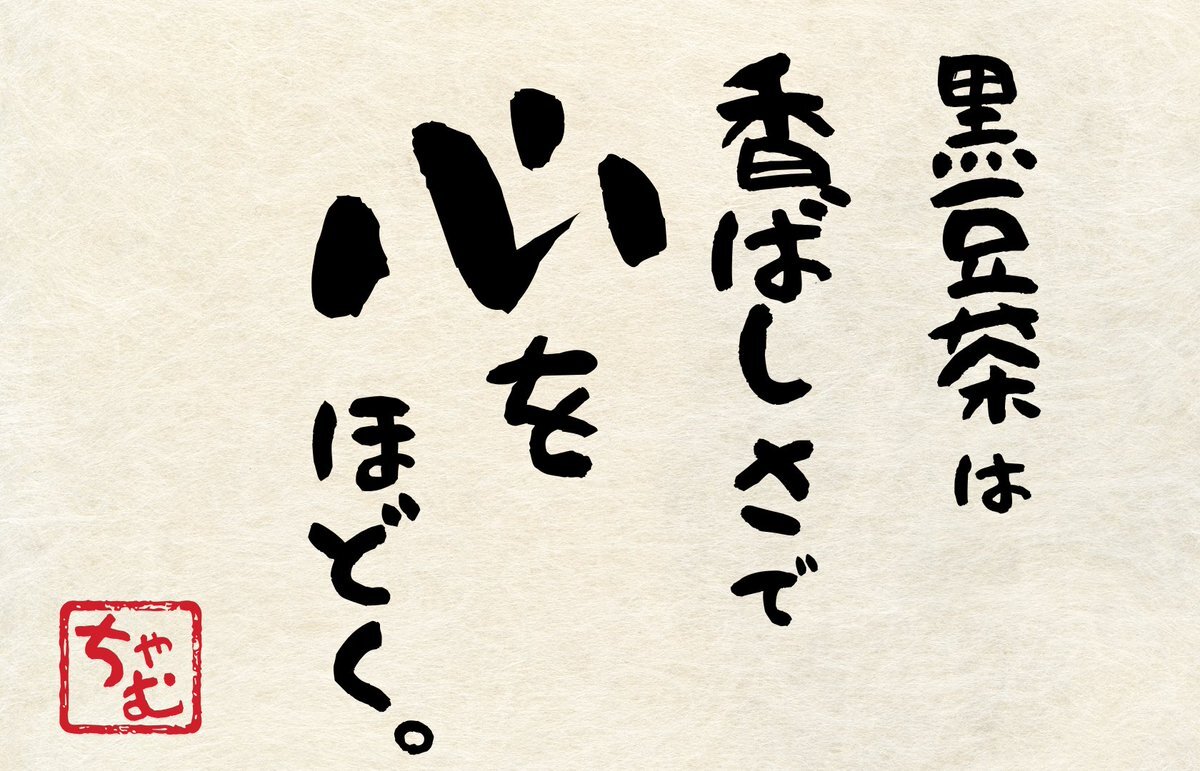 黒豆茶は
香ばしさで
心を
ほどく。
ちゃむ